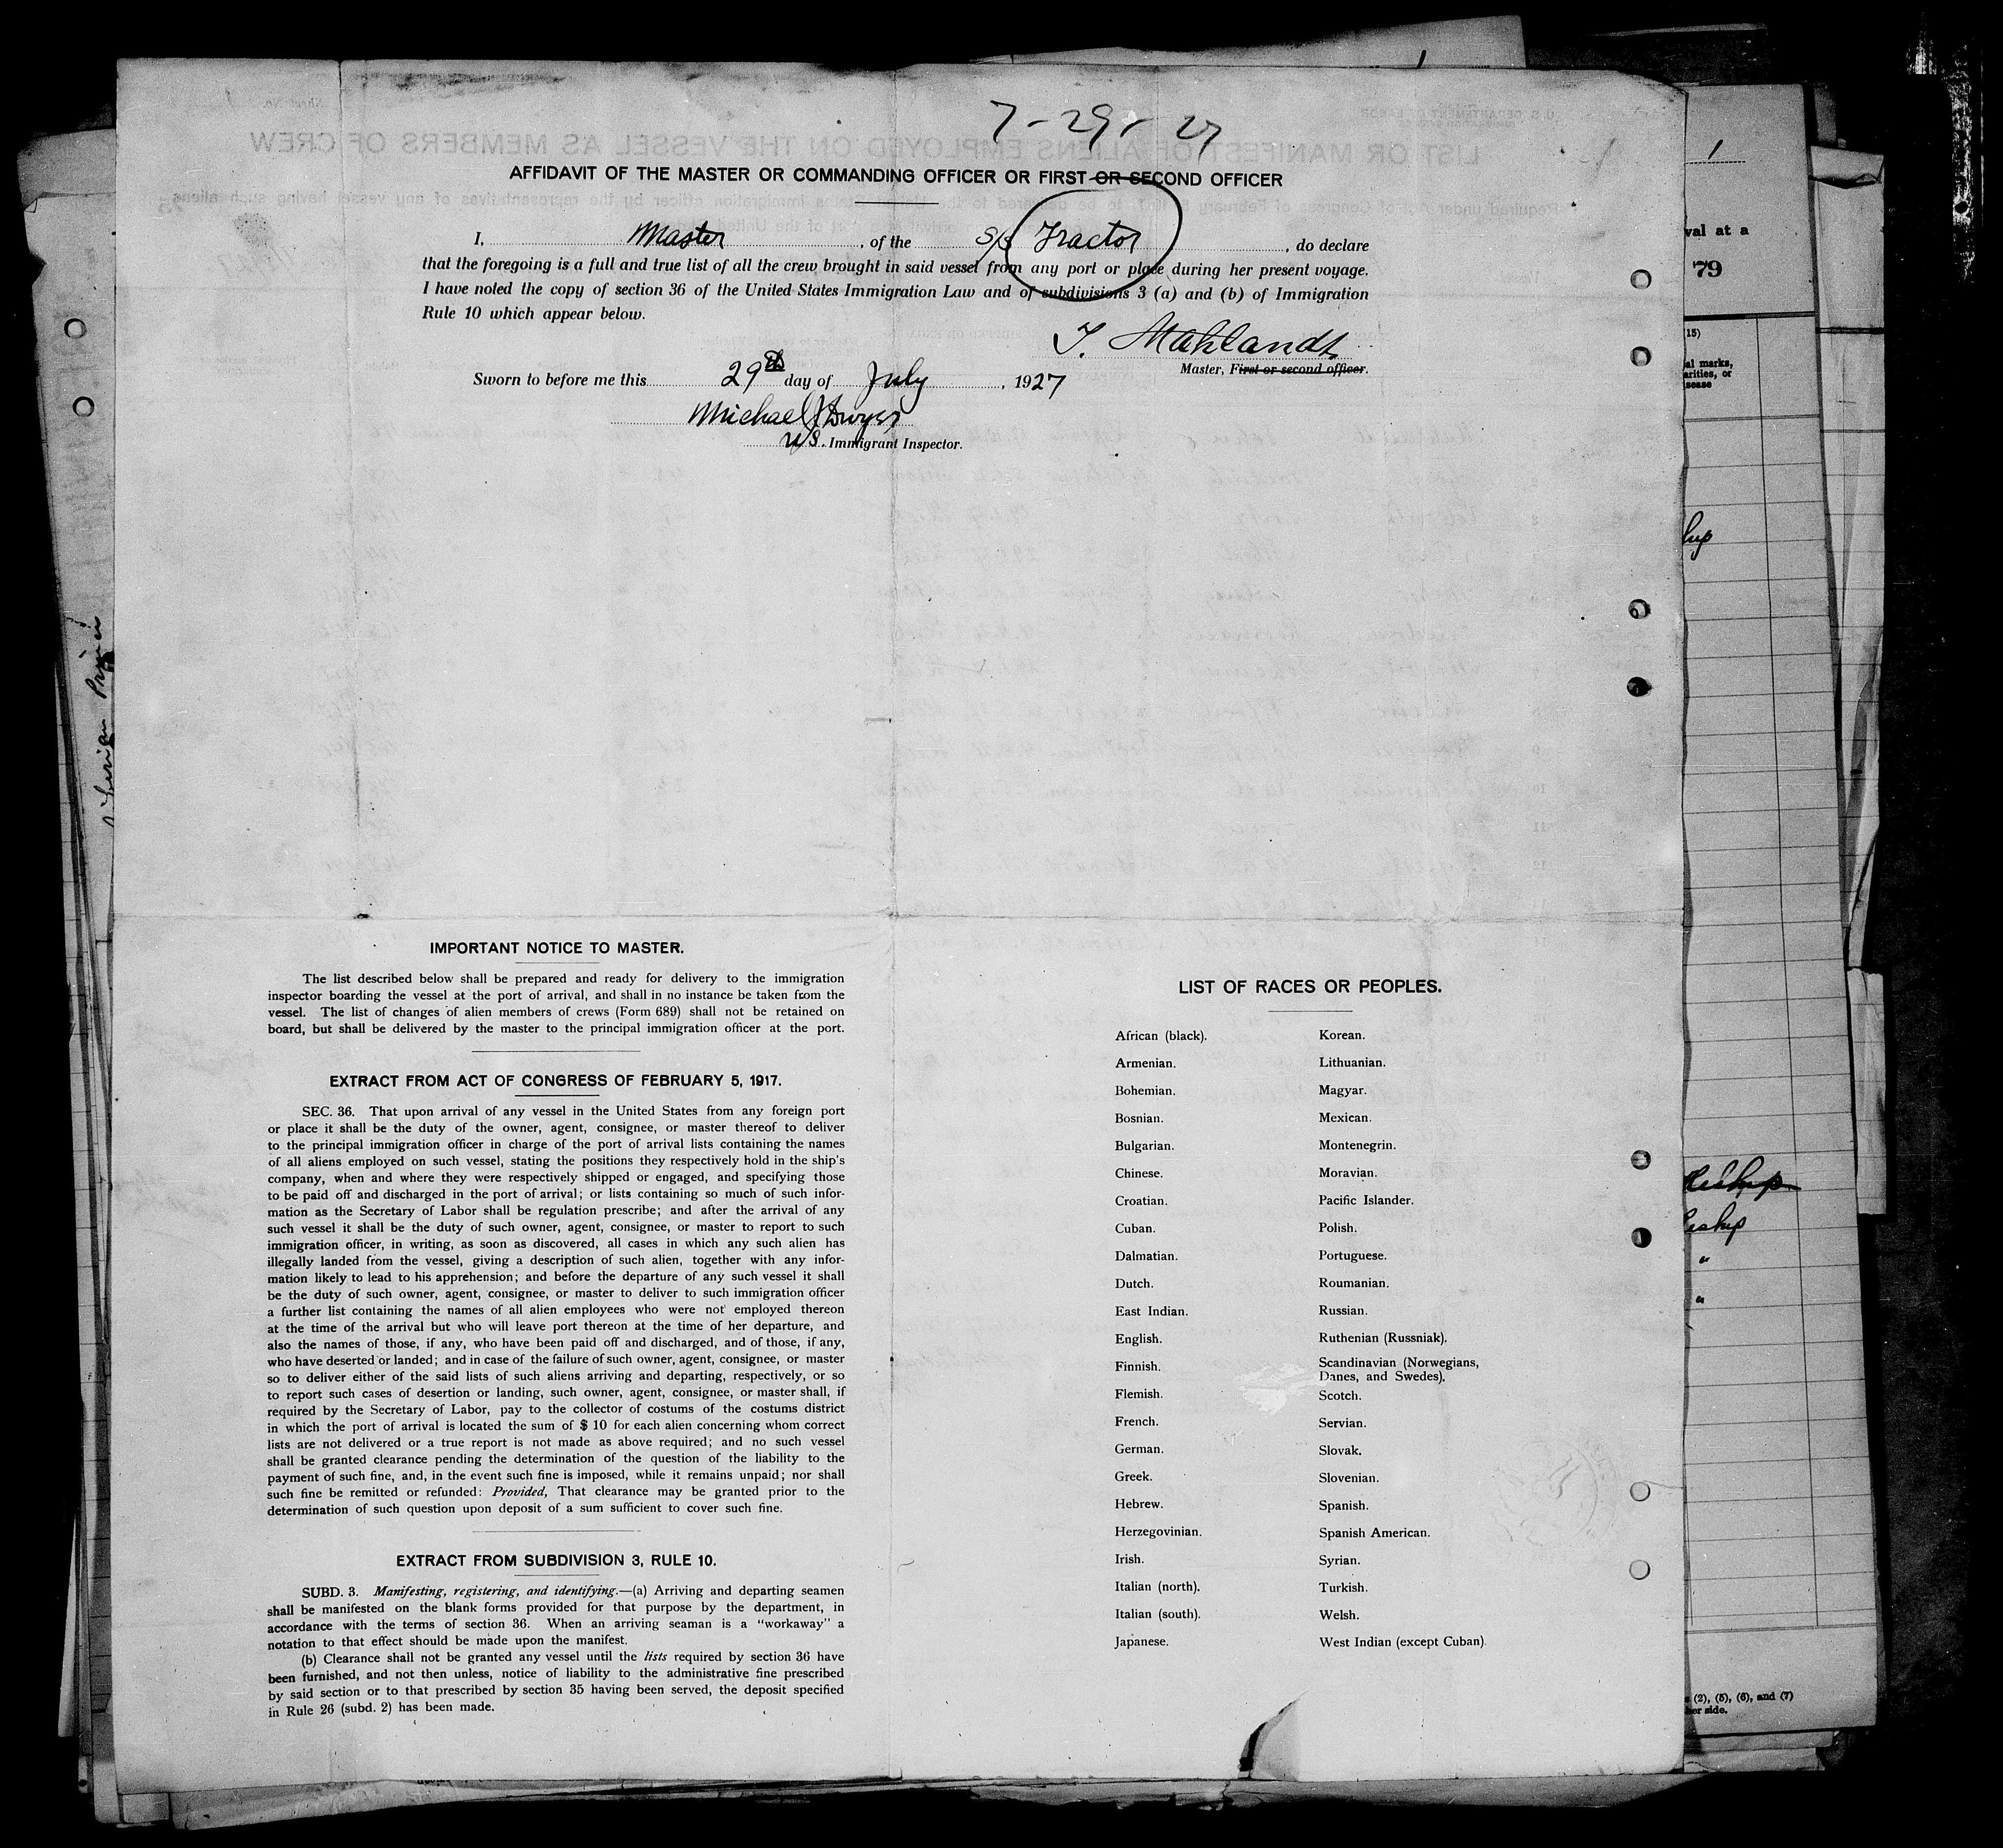 7-29-27
AFFIDAVIT OF THE MASTER OR COMMANDING OFFICER OR FIRST OR SECOND OFFICER
I, Master, of the S/S Tractor, do declare
that the foregoing is a full and true list of all the crew brought in said vessel from any port or place during her present voyage.
I have noted the copy of section 36 of the United States Immigration Law and of subdivisions 3 (a) and (b) of Immigration
Rule 10 which appear below.
Master, First or second officer.
Sworn to before me this 29th day of July, 1927
Michael J Dwyer
US. Immigrant Inspector.
IMPORTANT NOTICE TO MASTER.
The list described below shall be prepared and ready for delivery to the immigration
inspector boarding the vessel at the port of arrival, and shall in no instance be taken from the
vessel. The list of changes of alien members of crews (Form 689) shall not be retained on
board, but shall be delivered by the master to the principal immigration officer at the port.
EXTRACT FROM ACT OF CONGRESS OF FEBRUARY 5, 1917.
SEC. 36. That upon arrival of any vessel in the United States from any foreign port
or place it shall be the duty of the owner, agent, consignee, or master thereof to deliver
to the principal immigration officer in charge of the port of arrival lists containing the names
of all aliens employed on such vessel, stating the positions they respectively hold in the ship's
company, when and where they were respectively shipped or engaged, and specifying those
to be paid off and discharged in the port of arrival; or lists containing so much of such infor-
mation as the Secretary of Labor shall be regulation prescribe; and after the arrival of any
such vessel it shall be the duty of such owner, agent, consignee, or master to report to such
immigration officer, in writing, as soon as discovered, all cases in which any such alien has
illegally landed from the vessel, giving a description of such alien, together with any infor-
mation likely to lead to his apprehension; and before the departure of any such vessel it shall
be the duty of such owner, agent, consignee, or master to deliver to such immigration officer
a further list containing the names of all alien employees who were not employed thereon
at the time of the arrival but who will leave port thereon at the time of her departure, and
also the names of those, if any, who have been paid off and discharged, and of those, if any,
who have deserted or landed; and in case of the failure of such owner, agent, consignee, or master
so to deliver either of the said lists of such aliens arriving and departing, respectively, or so
to report such cases of desertion or landing, such owner, agent, consignee, or master shall, if
required by the Secretary of Labor, pay to the collector of costums of the costums district
in which the port of arrival is located the sum of $ 10 for each alien concerning whom correct
lists are not delivered or a true report is not made as above required; and no such vessel
shall be granted clearance pending the determination of the question of the liability to the
payment of such fine, and, in the event such fine is imposed, while it remains unpaid; nor shall
such fine be remitted or refunded: Provided, That clearance may be granted prior to the
determination of such question upon deposit of a sum sufficient to cover such fine.
EXTRACT FROM SUBDIVISION 3, RULE 10.
SUBD. 3. Manifesting, registering, and identifying.—(a) Arriving and departing seamen
shall be manifested on the blank forms provided for that purpose by the department, in
accordance with the terms of section 36. When an arriving seaman is a "workaway" a
notation to that effect should be made upon the manifest.
(b) Clearance shall not be granted any vessel until the lists required by section 36 have
been furnished, and not then unless, notice of liability to the administrative fine prescribed
by said section or to that prescribed by section 35 having been served, the deposit specified
in Rule 26 (subd. 2) has been made.
LIST OF RACES OR PEOPLES.
African (black).
Armenian.
Bohemian.
Bosnian.
Bulgarian.
Chinese.
Croatian.
Cuban.
Dalmatian.
Dutch.
East Indian.
English.
Finnish.
Flemish.
French.
German.
Greek.
Hebrew.
Herzegovinian.
Irish.
Italian (north).
Italian (south).
Japanese.
Korean.
Lithuanian.
Magyar.
Mexican.
Montenegrin.
Moravian.
Pacific Islander.
Polish.
Portuguese.
Roumanian.
Russian.
Ruthenian (Russniak).
Scandinavian (Norwegians,
Danes, and Swedes).
Scotch.
Servian.
Slovak.
Slovenian.
Spanish.
Spanish American.
Syrian.
Turkish.
Welsh.
West Indian (except Cuban).
1
val at a
79
(15)
al marks,
arities, or
sease
(2), (5), (6), and (7)
her side.